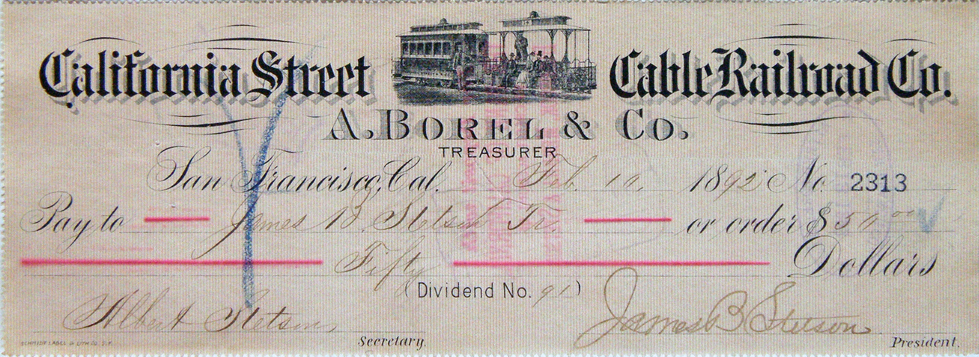 California Street Cable Railroad Co.
A. BOREL & Co.
TREASURER
San Francisco, Cal. Feb. 10, 1892 No 2313
Pay to James B. Stetson Tr. or order $50 00
Fifty Dollars
(Dividend No. 91)
Albert Stetson, James B Stetson
SCHMIDT LABEL & LITH. CO. S.F. Secretary. President.